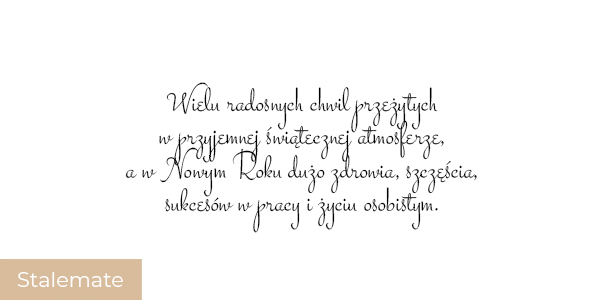 Wielu radosnych chwil przeżytych
w przyjemnej świątecznej atmosferze,
a w Nowym Roku dużo zdrowia, szczęścia,
sukcesów w pracy i życiu osobistym.
Stalemate